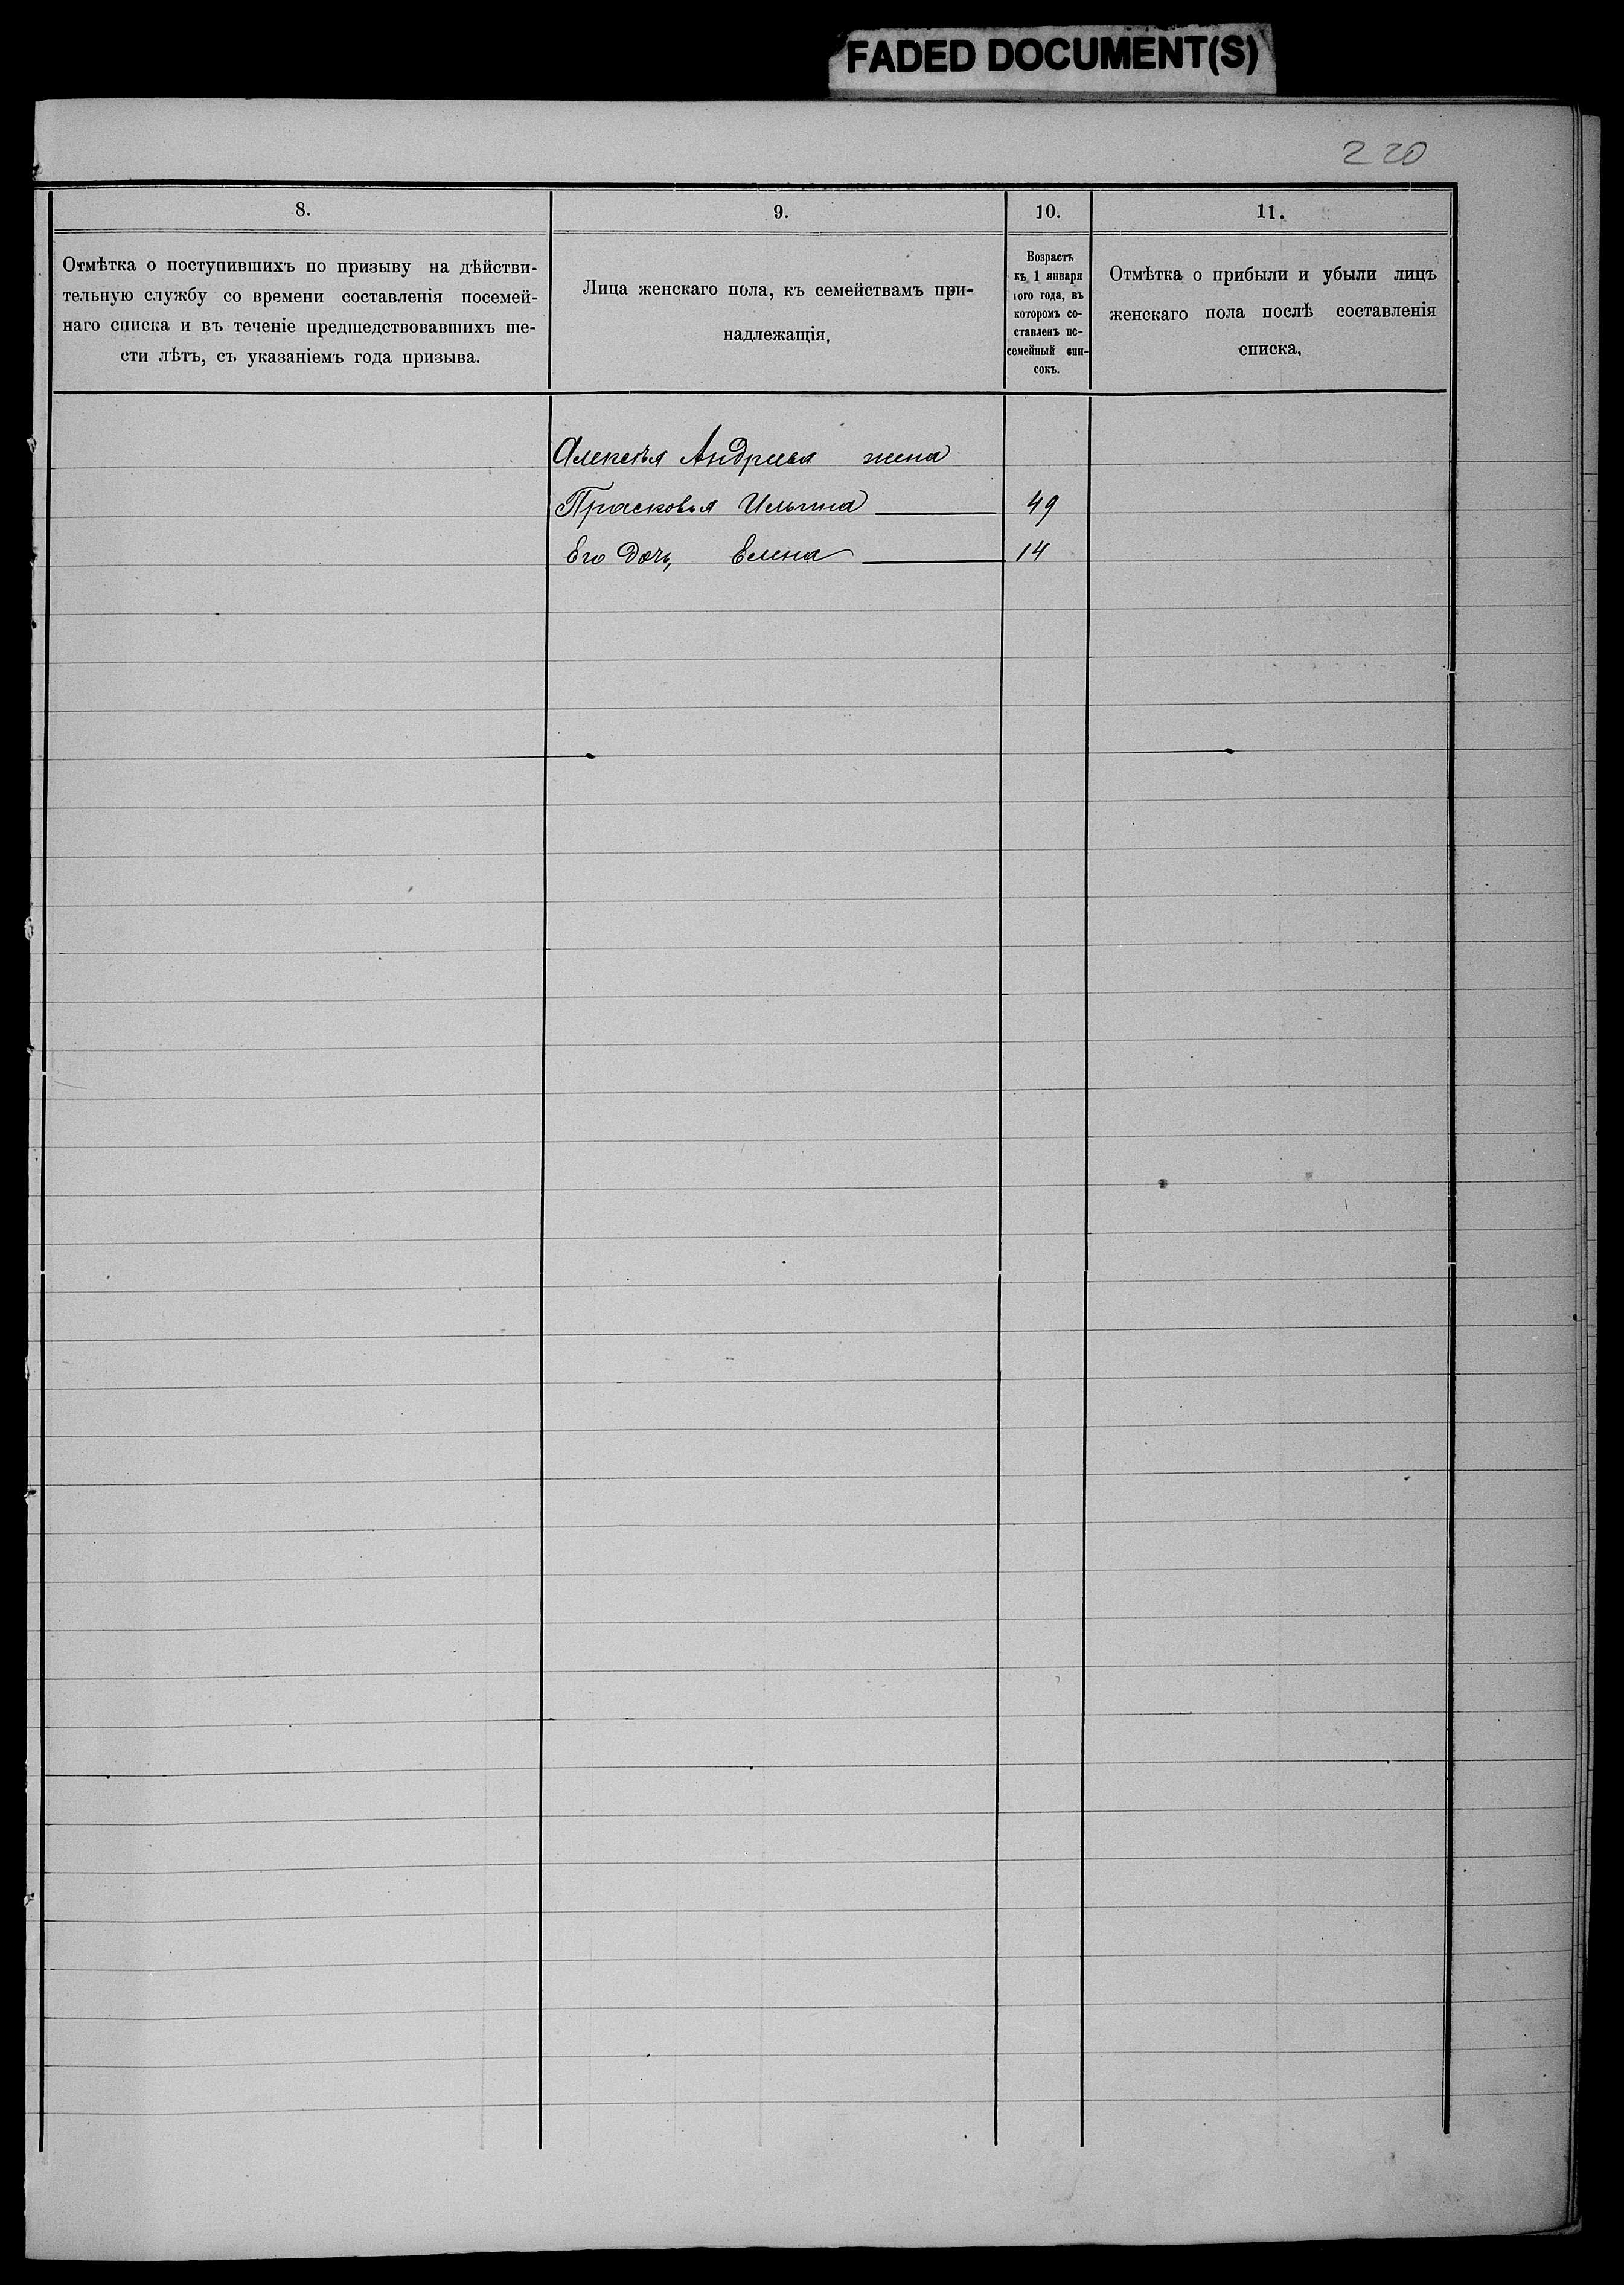 FADED DOCUMENT(S)
220
8.
9.
10.
11.
Отмѣтка о поступившихъ по призыву на дѣйстви-
тельную службу со времени составленія посемей-
наго списка и въ теченіе предшедствовавшихъ ше-
сти лѣтъ, съ указаніемъ года призыва.
Лица женскаго пола, къ семействамъ при-
надлежащія,
Возрастъ
къ 1 января
того года, въ
которомъ со-
ставленъ по-
семейный спи-
сокъ.
Отмѣтка о прибыли и убыли лицъ
женскаго пола послѣ составленія
списка,
Алексѣя Андриева жена
Прасковья Ильина 49
Его дочь, Елена 14